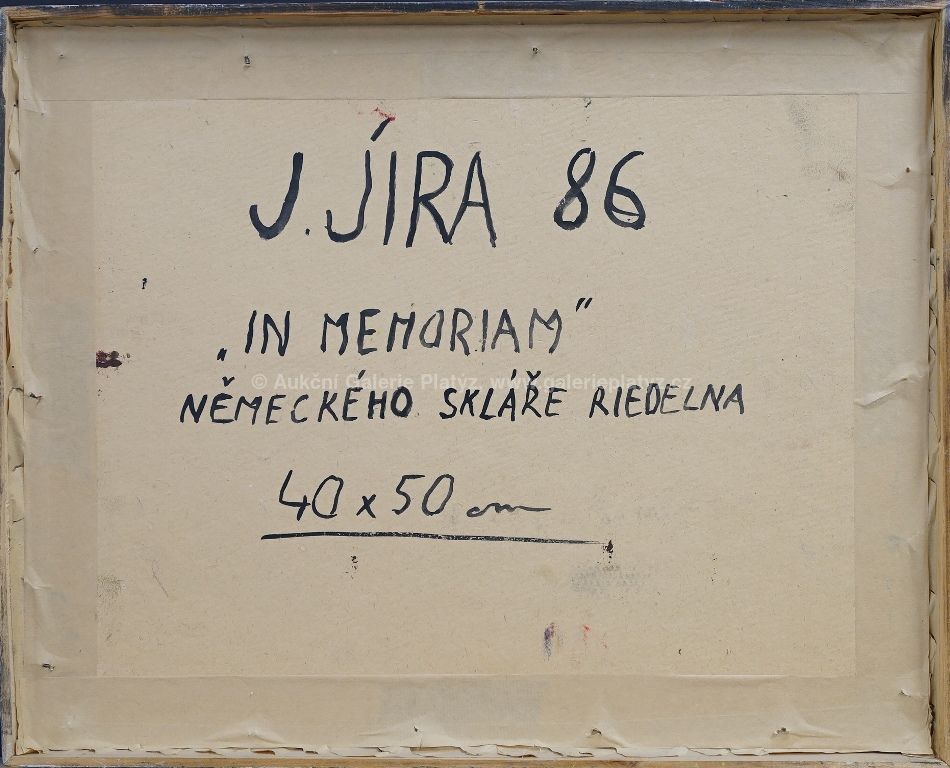 J. JÍRA 86
„IN MEMORIAM”
© Aukční Galerie Platýz, www.galerieplatyz.cz
NĚMECKÉHO SKLÁŘE RIEDELNA
40 x 50 cm